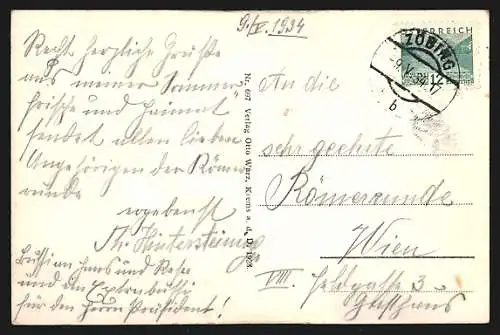 9./V. 1934
Recht herzliche Grüsse
aus meiner Sommer
frische und Heimat
sendet allen lieben
Angehörigen der Römer
runde
ergebenst
Th. Hintersteiner
Bussi an Hans und Rosa
und ein Extrabussi
für den Herrn Präsident!
Nr. 697 Verlag Otto Wurz, Krems a. d. D. 1928
ÖSTERREICH
12
ZÖBING
-9.V.34.17
b
An die
sehr geehrte
Römerrunde
Wien
VIII. Feldgasse 3
Gasthaus